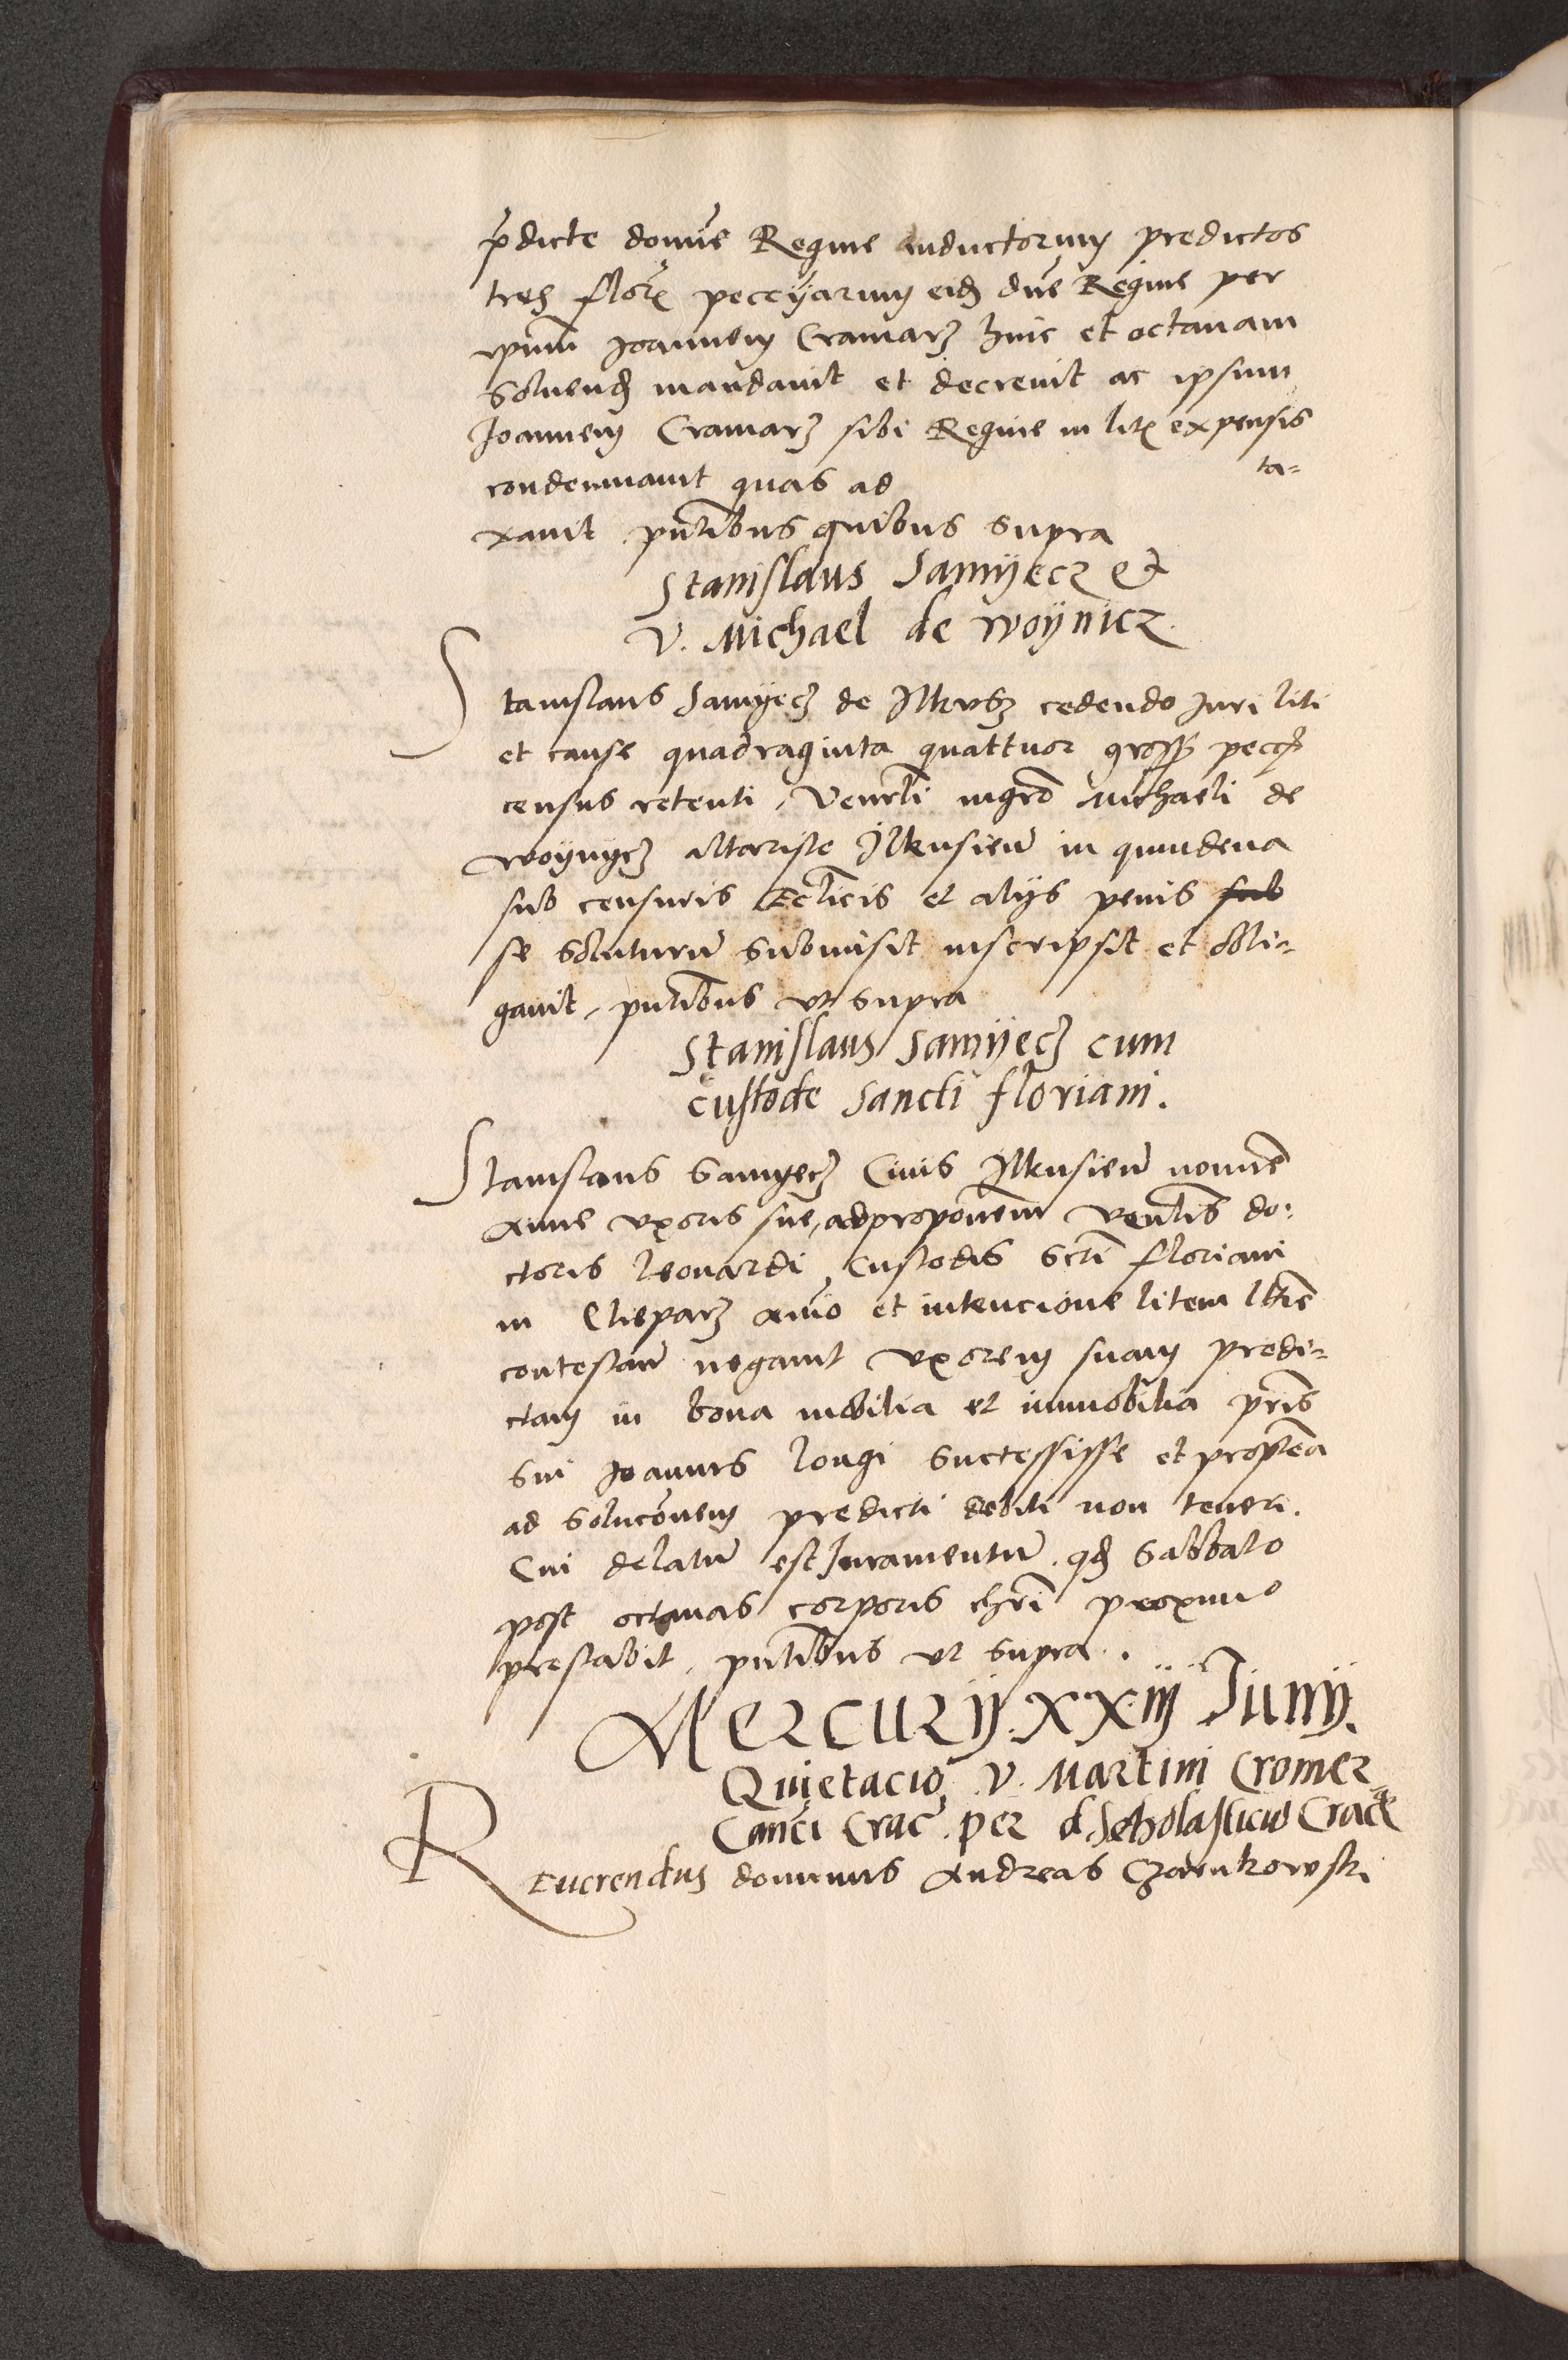 p̃dicte domĩe Regine inductorum predictos
tres flor̃ peccyarum eid̃ dñe Regine per
ip̃um Joannem Cramarz hinc et octavam
solvend̃ mandavit et decrevit ac ipsum
Joannem Cramarz sibi Regine in lit̃ expensis
condemnavit quas ad ta=
xavit. pñtibus quibus supra
Stanislaus Samyecz et
V. Michael de Woynicz.
Stanislaus Samyecz de Ilkusz cedendo Juri liti
et cause quadraginta quattuor gross̃ pecc̃
census retenti, Venrl̃i mgr̃o Michaeli de
Woynycz altariste Ilkusieñ in quindena
sub censuris Eccl̃icis et alijs penis sub
se soluturũ submisit inscripsit et obli=
gavit, pñtibus ut supra
Stanislaus Samyecz cum
custode Sancti Floriani.
Stanislaus Samyecz Civis Ilkusieñ nomĩe
Anne uxoris sue, ad proponem̃ Venlĩs do:
ctoris Leonardi Custodis Sctĩ Floriani
in Cleparz aĩo et intencione litem l̃tiẽ
contestan̄ negavit uxorem suam predi=
ctam in bona mobilia et immobilia pr̃is
sui Joannis Longi successisse et propteã
ad soluc̃onem predicti debiti non teneri.
Cui delatũ est Juramentũ. qd̃ Sabbato
post octavas corporis chrĩ proximo
prestabit, pñtibus ut supra.
MERCURIJ XXIIJ Junij.
Quietacio V. Martini Cromer
Canc̃i Crac̃. per d. Scholasticũ Crac̃
Reverendus dominus Andreas Czarnkowski